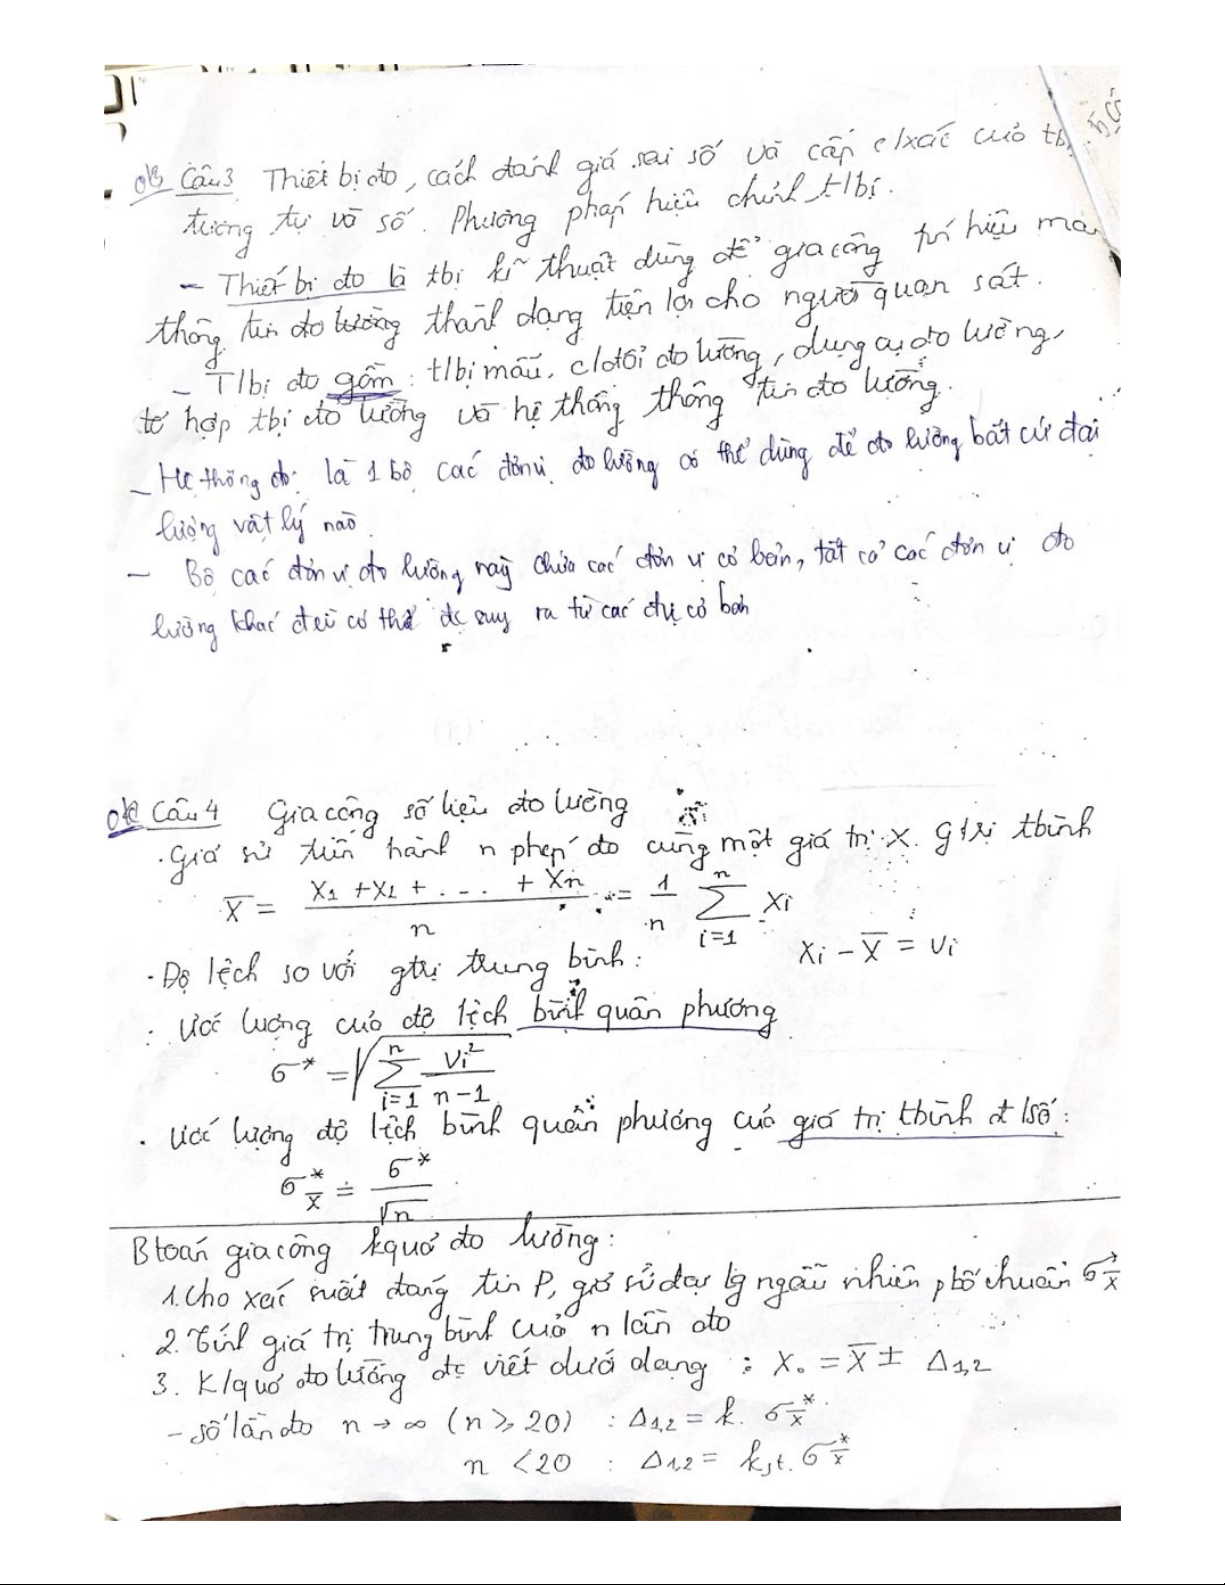 Câu 3 Thiết bị đo, cách đánh giá sai số và cấp c/xác của tbị
tương tự và số. Phương pháp hiệu chỉnh t/bị.
- Thiết bị đo là tbị kĩ thuật dùng để gia công tín hiệu mang
thông tin đo lường thành dạng tiện lợi cho người quan sát.
- T/bị đo gồm: t/bị mẫu, c/đổi đo lường, dụng cụ đo lường,
tổ hợp tbị đo lường và hệ thống thông tin đo lường.
- Hệ thống đo: là 1 bộ các đơn vị đo lường có thể dùng để đo lường bất cứ đại
lượng vật lý nào.
- Bộ các đơn vị đo lường này chứa các đơn vị cơ bản, tất cả các đơn vị đo
lường khác đều có thể đc suy ra từ các đvị cơ bản
Câu 4 Gia công số liệu đo lường
· Giả sử tiến hành n phép đo cùng một giá trị X. gtrị tbình
X̄ = (X₁ + X₂ + . . . + Xn) / n = 1/n Σ(i=1→n) Xi
· Độ lệch so với gtrị trung bình: Xi - X̄ = Vi
· Ước lượng của độ lệch bình quân phương
σ* = √(Σ(i=1→n) Vi²/(n-1))
· Ước lượng độ lệch bình quân phương của giá trị tbình đ/số:
σ*x̄ = σ*/√n
B toán gia công kquả đo lường:
1. Cho xác suất đáng tin P, giả sử đại lg ngẫu nhiên pbố chuẩn σ*x̄
2. Tính giá trị trung bình của n lần đo
3. K/quả đo lường đc viết dưới dạng : X₀ = X̄ ± Δ1,2
- Số lần đo n → ∞ (n ≥ 20) : Δ1,2 = k. σ*x̄
n < 20 : Δ1,2 = kst. σ*x̄